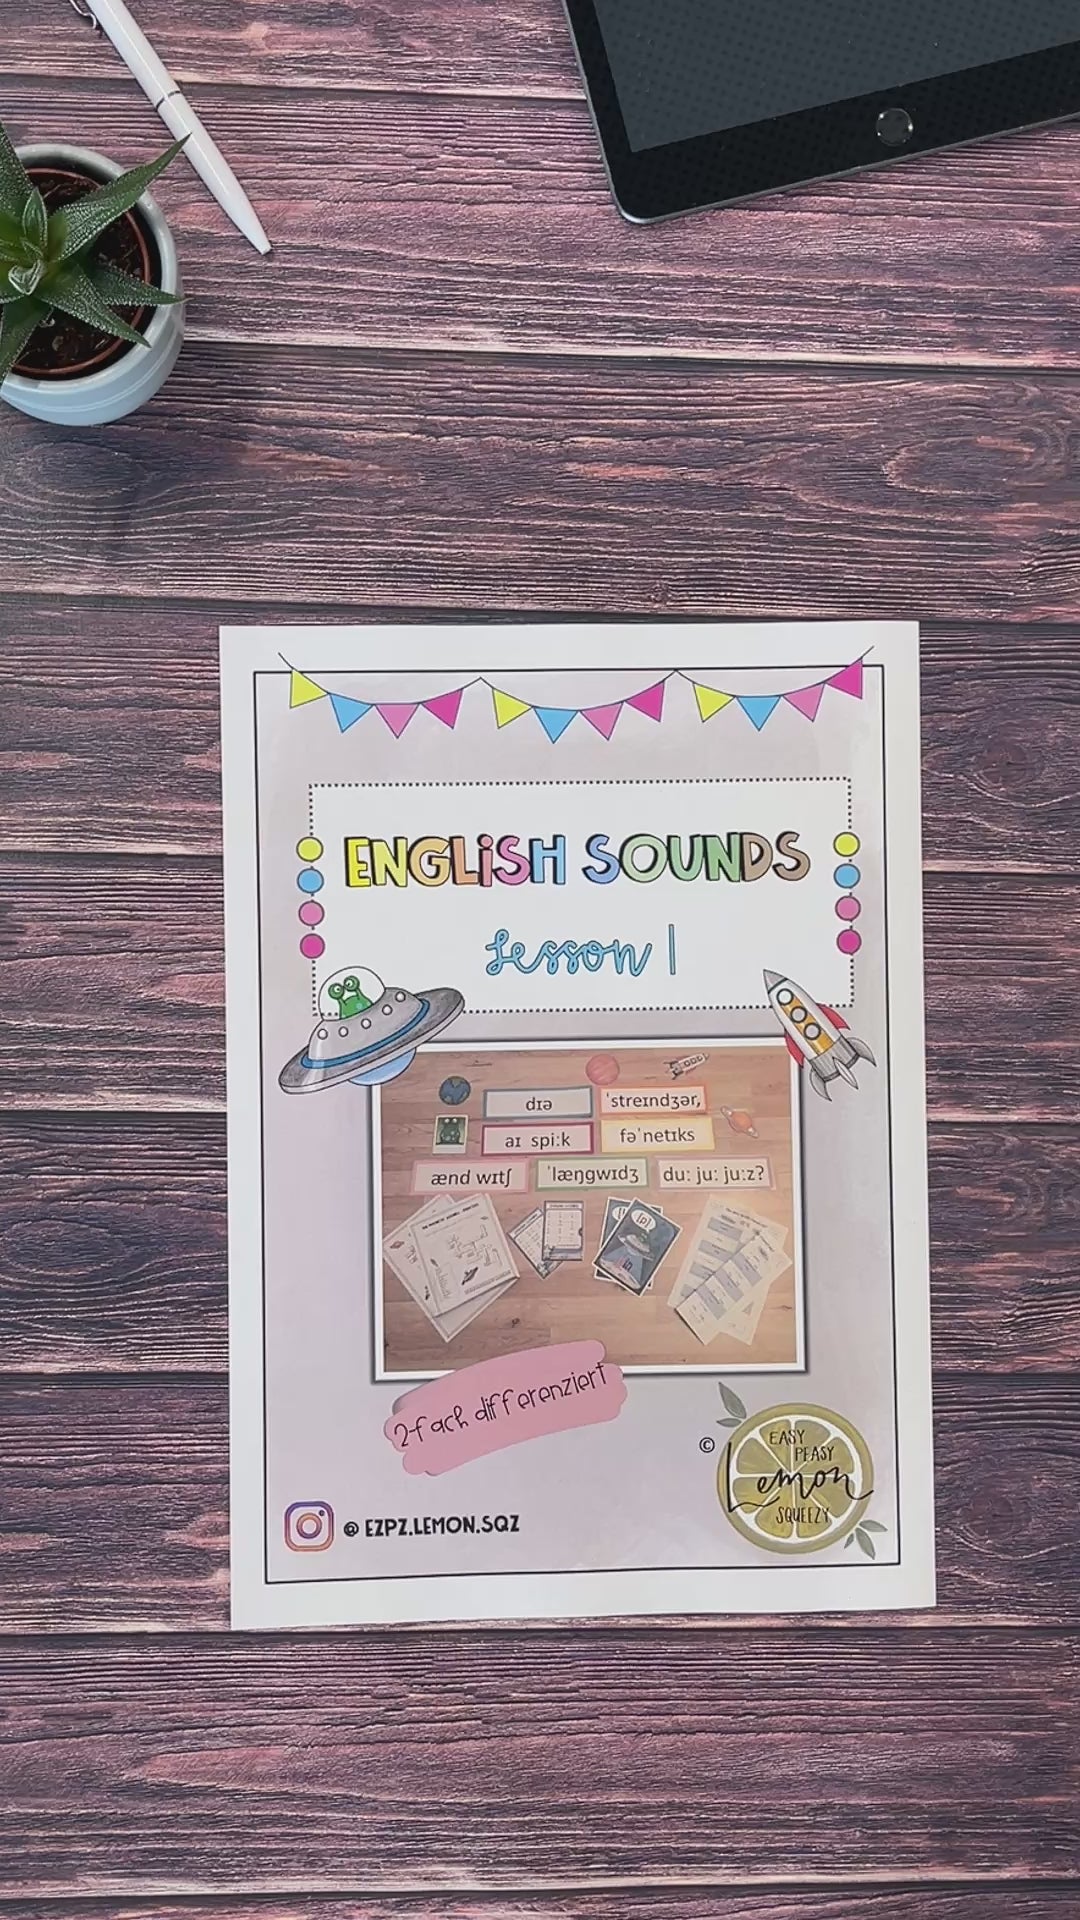 ENGLISH SOUNDS
Lesson 1
dɪə
ˈstreɪndʒər,
aɪ spiːk
fəˈnetɪks
ænd wɪtʃ
ˈlæŋgwɪdʒ
duː juː juːz?
[p]
2-fach differenziert
©
EASY
PEASY
Lemon
SQUEEZY
@ EZPZ.LEMON.SQZ